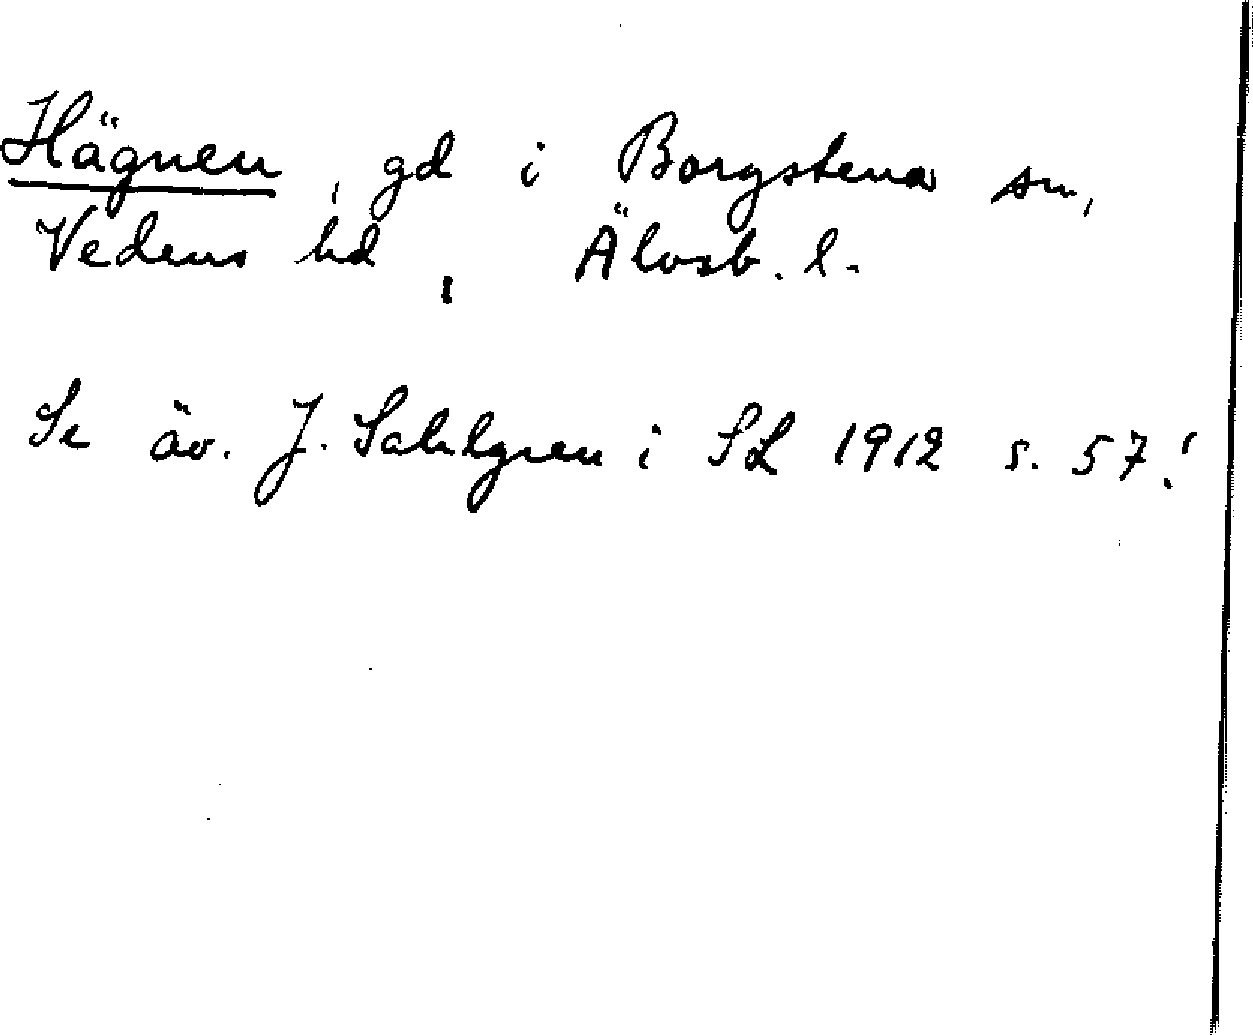 Hägnen, gd i Borgstena sn,
Vedens hd, Älvsb. l.
Se äv. J. Sahlgren i SL 1912 s. 57!